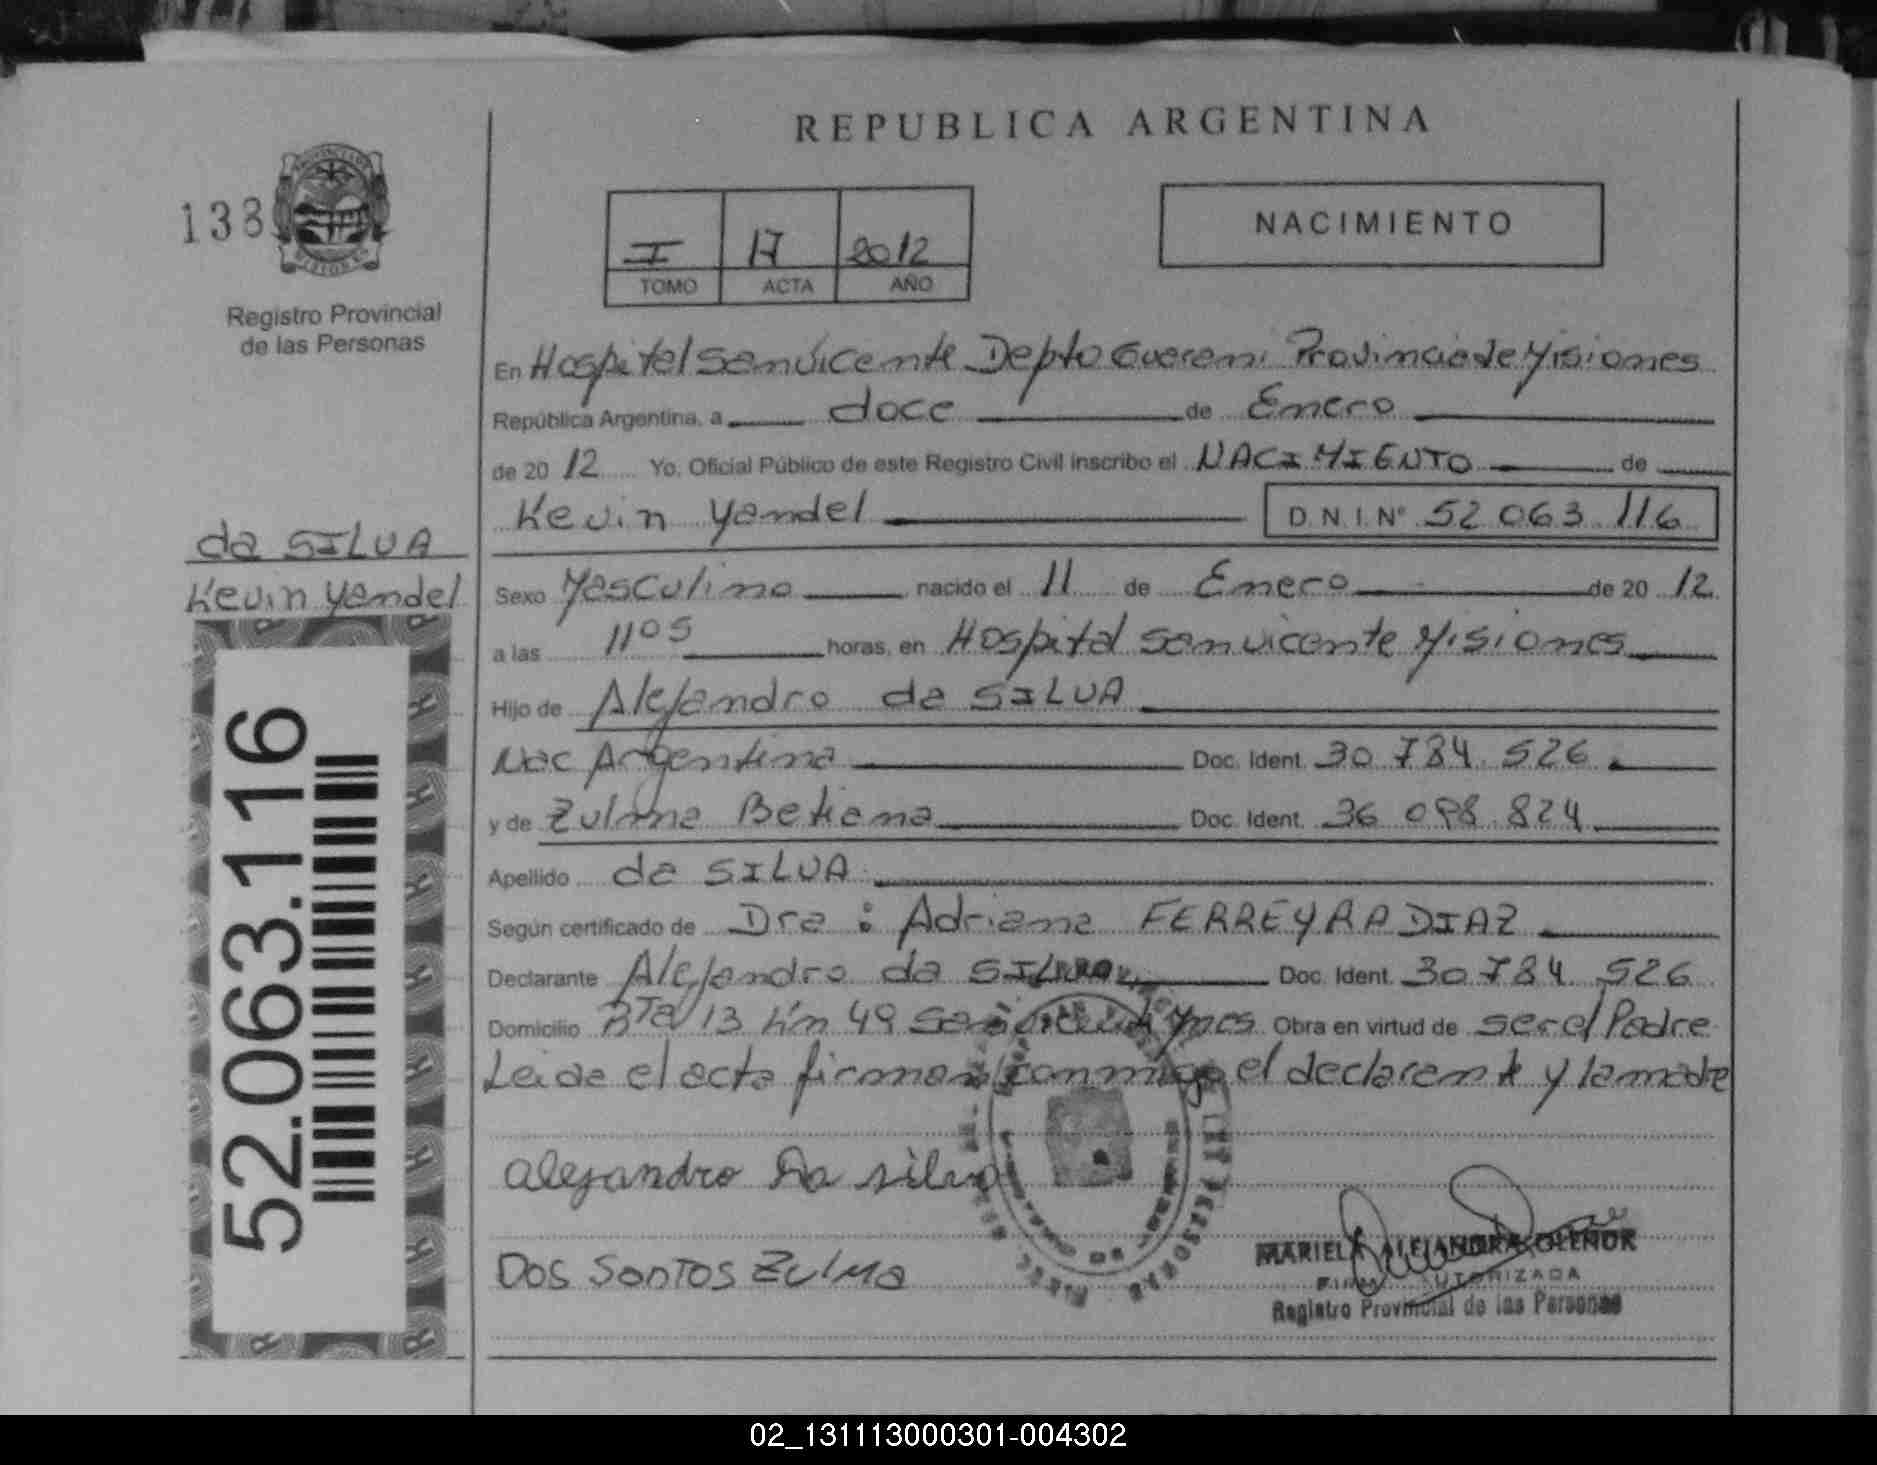 REPUBLICA ARGENTINA
138
Registro Provincial
de las Personas
I 17 2012
TOMO ACTA AÑO
NACIMIENTO
En Hospital San Vicente Depto Guarani Provincia de Misiones
República Argentina, a doce de Enero
de 20 12 Yo, Oficial Público de este Registro Civil inscribo el NACIMIENTO de
Kevin Yandel D.N.I. Nº 52 063 116
da SILVA
Kevin Yandel
Sexo Masculino nacido el 11 de Enero de 20 12
a las 11 05 horas, en Hospital San Vicente Misiones
Hijo de Alejandro da SILVA
Nac Argentina Doc. Ident. 30 784 526
y de Zulma Betiana Doc. Ident. 36 098 824
Apellido da SILVA
Según certificado de Dra : Adriana FERREYRA DIAZ
Declarante Alejandro da SILVA Doc. Ident. 30 784 526
Domicilio km 49 San Vicente Mnes Obra en virtud de ser el Padre
Leida el acta firman conmigo el declarante y la madre
alejandro Da silva
Dos Santos Zulma
MARIELA ALEJANDRA OLENOK
FIRMA AUTORIZADA
Registro Provincial de las Personas
52.063.116
02_131113000301-004302